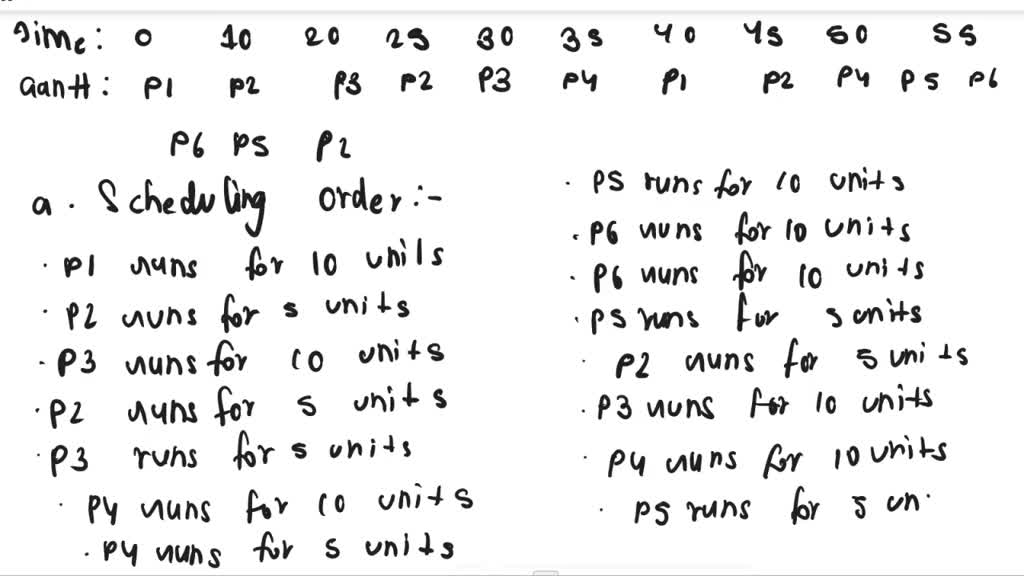 Time: 0 10 20 25 30 35 40 45 50 55
Gantt: P1 P2 P3 P2 P3 P4 P1 P2 P4 P5 P6
P6 P5 P2
a. Scheduling order:-
· P1 runs for 10 units
· P2 runs for 5 units
· P3 runs for 10 units
· P2 runs for 5 units
· P3 runs for 5 units
· P4 runs for 10 units
· P4 runs for 5 units
· P5 runs for 10 units
· P6 runs for 10 units
· P6 runs for 10 units
· P5 runs for 5 units
· P2 runs for 5 units
· P3 runs for 10 units
· P4 runs for 10 units
· P5 runs for 5 un